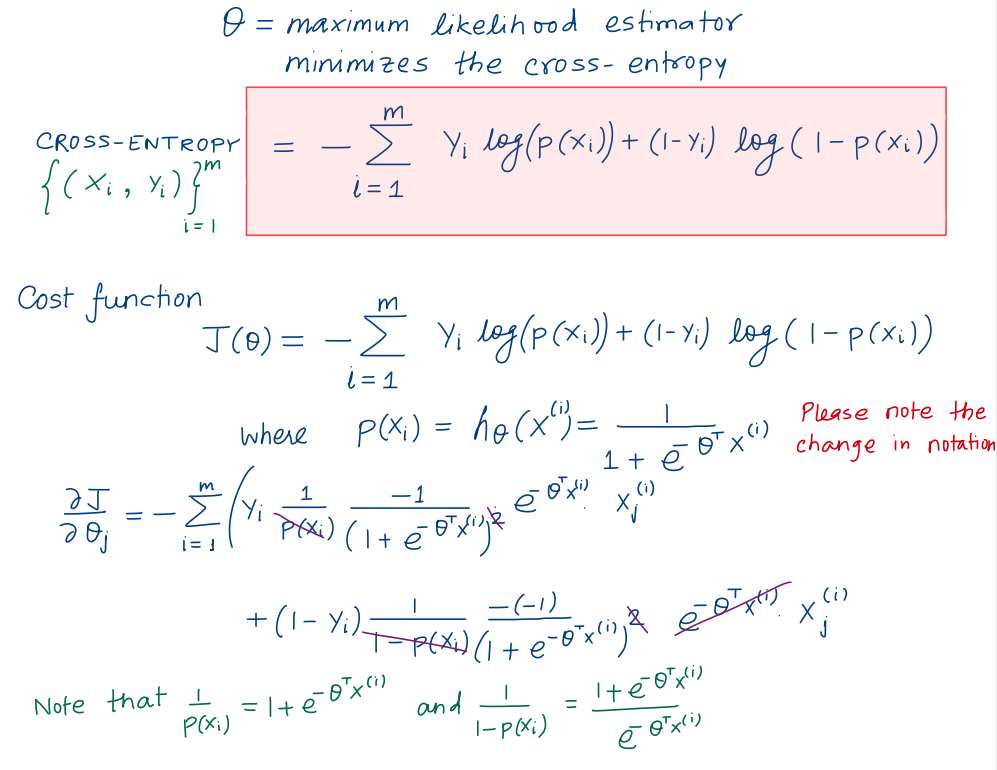 θ = maximum likelihood estimator
minimizes the cross-entropy
CROSS-ENTROPY = - ∑_{i=1}^{m} Yᵢ log(p(xᵢ)) + (1-Yᵢ) log(1-p(xᵢ))
{(xᵢ, Yᵢ)}_{i=1}^{m}
Cost function
J(θ) = - ∑_{i=1}^{m} Yᵢ log(p(xᵢ)) + (1-Yᵢ) log(1-p(xᵢ))
where p(xᵢ) = h_θ(x^{(i)}) = 1 / (1 + e^{-θ^T x^{(i)}})
Please note the
change in notation
∂J/∂θ_j = - ∑_{i=1}^{m} ( Yᵢ 1/p(xᵢ) -1/(1 + e^{-θ^T x^{(i)}})^2 e^{-θ^T x^{(i)}} x_j^{(i)}
+ (1-Yᵢ) 1/(1-p(xᵢ)) -(-1)/(1 + e^{-θ^T x^{(i)}})^2 e^{-θ^T x^{(i)}} x_j^{(i)}
Note that 1/p(xᵢ) = 1 + e^{-θ^T x^{(i)}} and 1/(1-p(xᵢ)) = (1 + e^{-θ^T x^{(i)}}) / e^{-θ^T x^{(i)}}